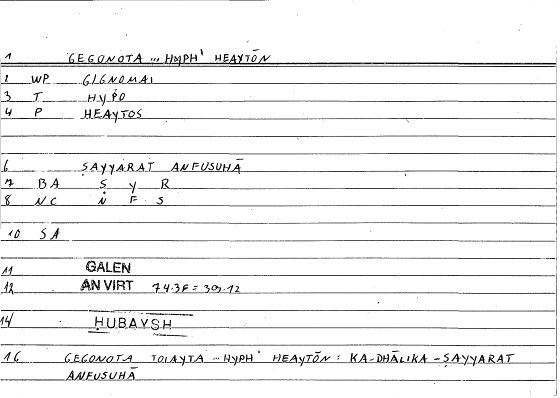 1 GEGONOTA ... HYPH' HEAYTŌN
2 WP GIGNOMAI
3 T HYPO
4 P HEAYTOS
6 ṢAYYARAT ANFUSUHĀ
7 BA Ṣ Y R
8 NC N F S
10 SA
11 GALEN
12 AN VIRT 74.38 = 309.12
14 HUBAYSH
16 GEGONOTA TOIAYTA ... HYPH' HEAYTŌN : KA-DHĀLIKA - ṢAYYARAT
ANFUSUHĀ